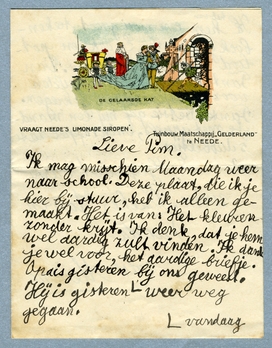 DE GELAARSDE KAT
VRAAGT NEEDE'S LIMONADE SIROPEN.
Tuinbouw Maatschappij „GELDERLAND"
te NEEDE.
Lieve Pim.
Ik mag misschien Maandag weer
naar school. Deze plaat, die ik je
hier bij stuur, heb ik alleen ge-
maakt. Het is van: Het kleuren
zonder krijt. Ik denk, dat je hem
wel aardig zult vinden. Ik dank
je wel voor, het aardige briefje.
Opa is gisteren bij ons geweest.
Hij is gisteren L weer weg
gegaan.
L vandaag